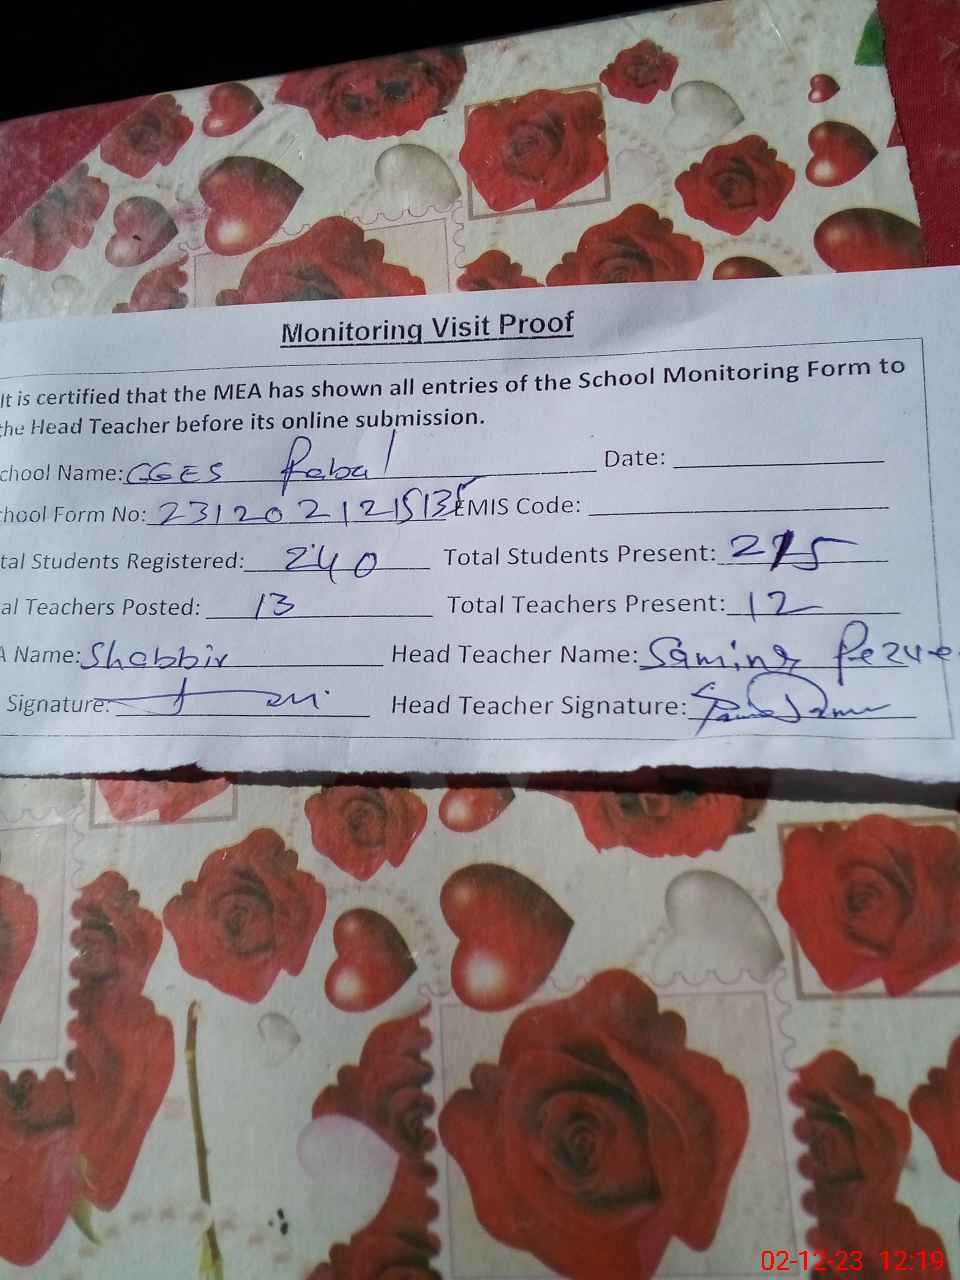 Monitoring Visit Proof
It is certified that the MEA has shown all entries of the School Monitoring Form to
the Head Teacher before its online submission.
chool Name: GGES Rabal Date:
hool Form No: 231202121513 EMIS Code:
tal Students Registered: 240 Total Students Present: 225
al Teachers Posted: 13 Total Teachers Present: 12
A Name: Shabbir Head Teacher Name:
Signature: Head Teacher Signature:
02-12-23 12:19